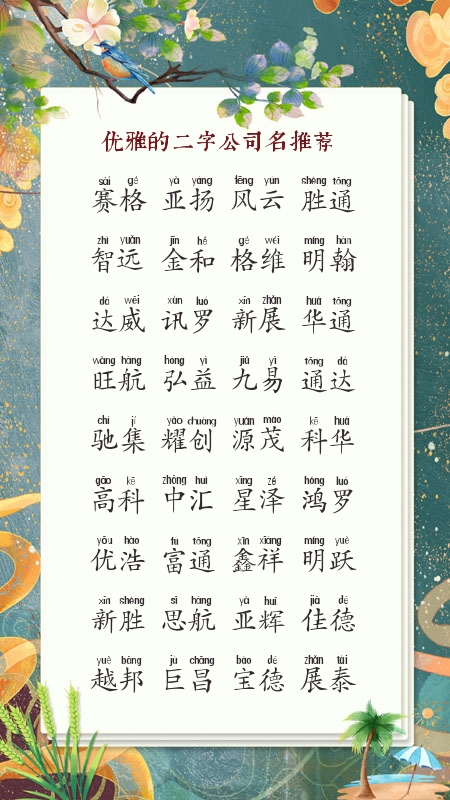 优雅的二字公司名推荐
sài gé yà yáng fēng yún shèng tōng
赛格 亚扬 风云 胜通
zhì yuǎn jīn hé gé wéi míng hàn
智远 金和 格维 明翰
dá wēi xùn luó xīn zhǎn huá tōng
达威 讯罗 新展 华通
wàng háng hóng yì jiǔ yì tōng dá
旺航 弘益 九易 通达
chí jí yào chuàng yuán mào kē huá
驰集 耀创 源茂 科华
gāo kē zhōng huì xīng zé hóng luó
高科 中汇 星泽 鸿罗
yōu hào fù tōng xīn xiáng míng yuè
优浩 富通 鑫祥 明跃
xīn shèng sī háng yà huī jiā dé
新胜 思航 亚辉 佳德
yuè bāng jù chāng bǎo dé zhǎn tài
越邦 巨昌 宝德 展泰